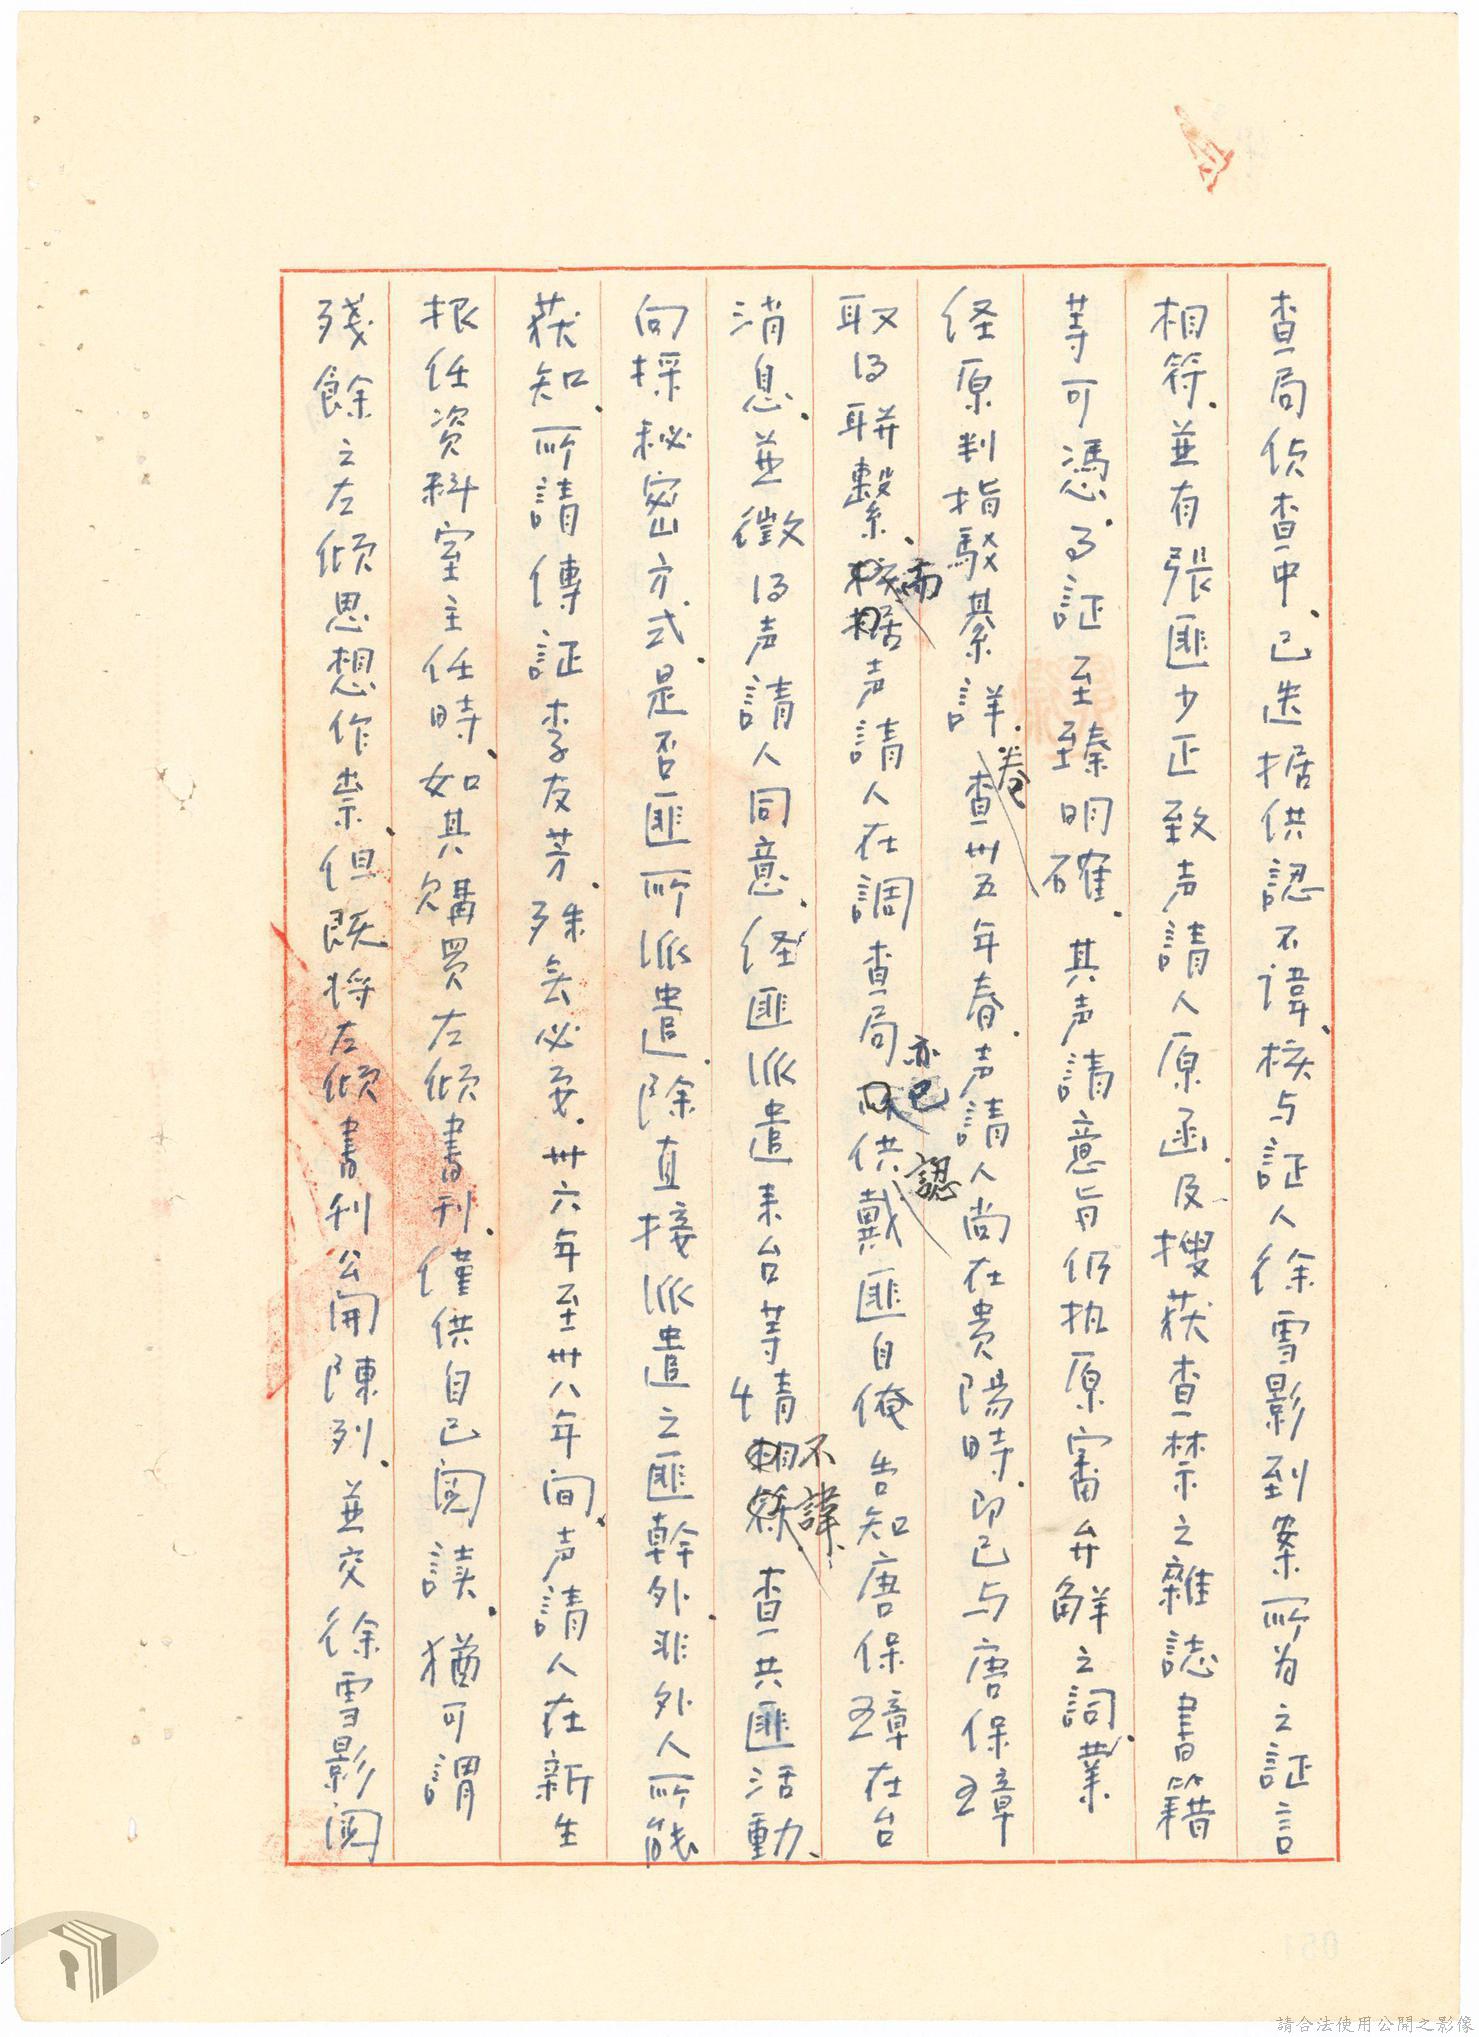 查局偵查中、已迭据供認不諱、核与証人徐雪影到案所为之証言
相符、並有張匪少正致声請人原函、及搜获查禁之雜誌書籍
等可憑、事証至臻明確、其声請意旨仍执原審弁解之詞、業
経原判指駁綦詳、卷查卅五年春、声請人尚在贵陽時、即已与唐保璋
取得联繫、而核據声請人在調查局亦已供認戴匪自俺告知唐保璋在台
消息、並徵得声請人同意、経匪派遣来台等情不諱、查共匪活動、
向採秘密方式、是否匪所派遣、除直接派遣之匪幹外、非外人所能
获知、所請傳証李友芳、殊无必要、卅六年至卅八年间、声請人在新生
报任资料室主任時、如其購買左傾書刊、僅供自己阅读、猶可謂
殘餘之左傾思想作祟、但既将左傾書刊公開陳列、並交徐雪影阅
請合法使用公開之影像